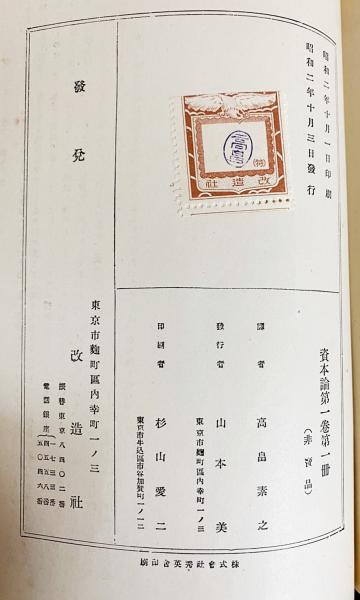 昭和二年十月一日印刷
昭和二年十月三日發行
高畠
(特)
改造社
資本論第一卷第一冊
(非賣品)
譯者
高畠素之
發行者
山本美
東京市麴町區內幸町一ノ三
印刷者
杉山愛二
東京市牛込區市谷加賀町一ノ一二
發兌
東京市麴町區內幸町一ノ三
改造社
振替東京八四〇二番
電話銀座
株式會社秀英舍印刷